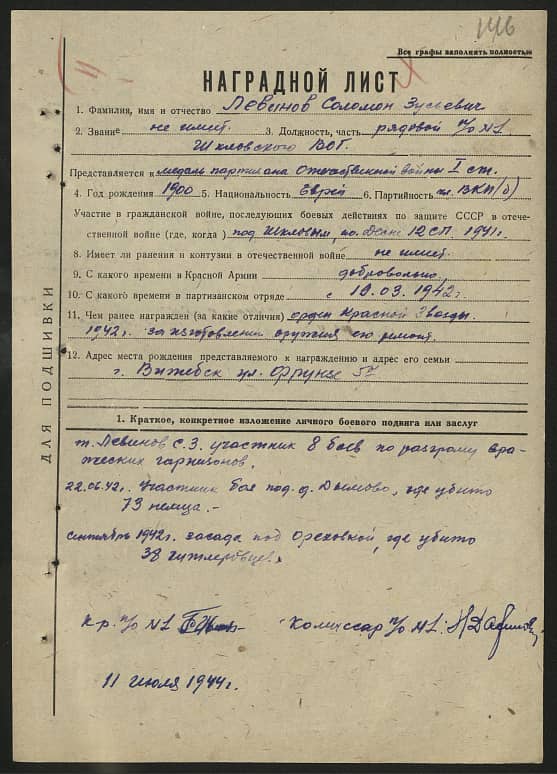 146
Все графы заполнять полностью
НАГРАДНОЙ ЛИСТ
1. Фамилия, имя и отчество Левинов Соломон Зусевич
2. Звание не имеет. 3. Должность, часть рядовой п/о №1
Шкловского ВОГ.
Представляется к медаль партизана Отечественной войны I ст.
4. Год рождения 1900 5. Национальность Еврей 6. Партийность чл. ВКП(б)
Участие в гражданской войне, последующих боевых действиях по защите СССР в отече-
ственной войне (где, когда) под Шкловым, 12 СП. 1941г.
8. Имеет ли ранения и контузии в отечественной войне не имеет.
9. С какого времени в Красной Армии добровольно
10. С какого времени в партизанском отряде с 19.03.1942г.
11. Чем ранее награжден (за какие отличия) орден Красной Звезды
1942г. за изготовление оружия его ремонт.
12. Адрес места рождения представляемого к награждению и адрес его семьи
г. Витебск ул. Фрунзе
ДЛЯ ПОДШИВКИ
1. Краткое, конкретное изложение личного боевого подвига или заслуг
т. Левинов С.З. участник 8 боев по разгрому вра-
жеских гарнизонов.
22.06.42г. Участник боя под д. Дымово, где убито
73 немца.-
сентябрь 1942г. засада под Ореховкой, где убито
38 гитлеровцев.
К-р. п/о №1 Комиссар п/о №1.
11 июля 1944г.